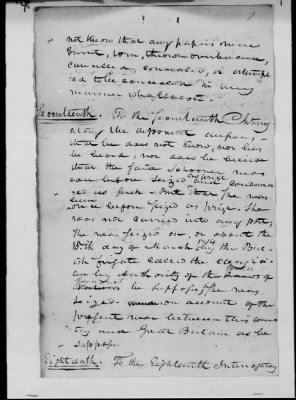 not know that any papers were
burnt, torn, thrown overboard,
cancelled, concealed, or attempt
ed to be concealed in any
manner whatsoever.
Seventeenth. To the Seventeenth Interry
along the deponent answers,
that he does not know, nor has
he heard, nor does he believe
that the said Schooner was
ever before seized as prize and condemn
ed as such - But that she was
before seized as prize. She
was not carried into any port,
She was seized on, or about the
18th day of March by the Brit-
ish frigate called the
by authority of the
he supposes, she was
seized on account of the
present war between this coun
try and Great Britain as he
supposes.
Eighteenth. To the Eighteenth Interrogatory